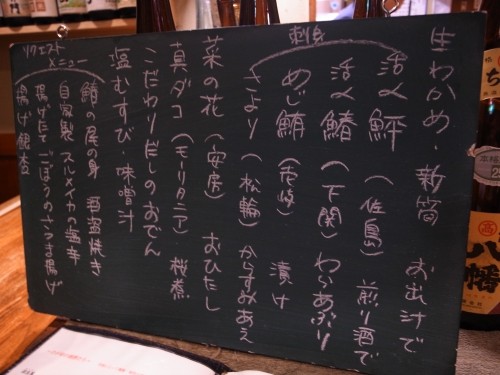 生わかめ・新筍 お出汁で
刺身
活〆鮃 （佐島） 煎り酒で
活〆鰆 （下関） わらあぶり
めじ鮪 （壱岐） 漬け
さより （松輪） からすみあえ
菜の花 （安房） おひたし
真ダコ （モーリタニア） 桜煮
こだわりだしのおでん
塩むすび・味噌汁
リクエストメニュー
鮪の尾の身 酒盗焼き
自家製 スルメイカの塩辛
揚げたて ごぼうのさつま揚げ
揚げ銀杏
八幡